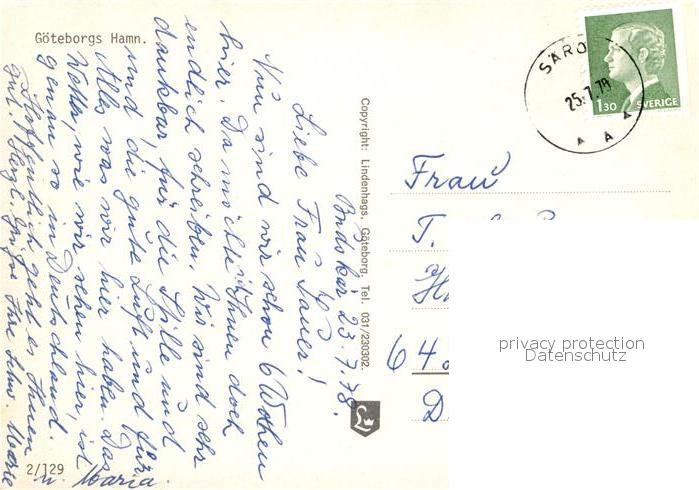 Göteborgs Hamn.
Budskär 23.7.78.
Liebe Frau Sauer!
Nun sind wir schon 6 Wochen
hier. Da möchte ich Ihnen doch
endlich schreiben. Wir sind sehr
dankbar, für die Stille und
und die gute Luft und für
Alles was wir hier haben. Das
Wetter, wie wir sehen hier, ist
genau so in Deutschland.
Hoffentlich geht es Ihnen
gut. Herzl. Grüße Ihre Schw. Marie
u. Maria.
2/129
Copyright: Lindenhags, Göteborg, Tel. 031/230302.
SÄRÖ
25.7.78
1 30 SVERIGE
Frau
T.
64
D
privacy protection
Datenschutz